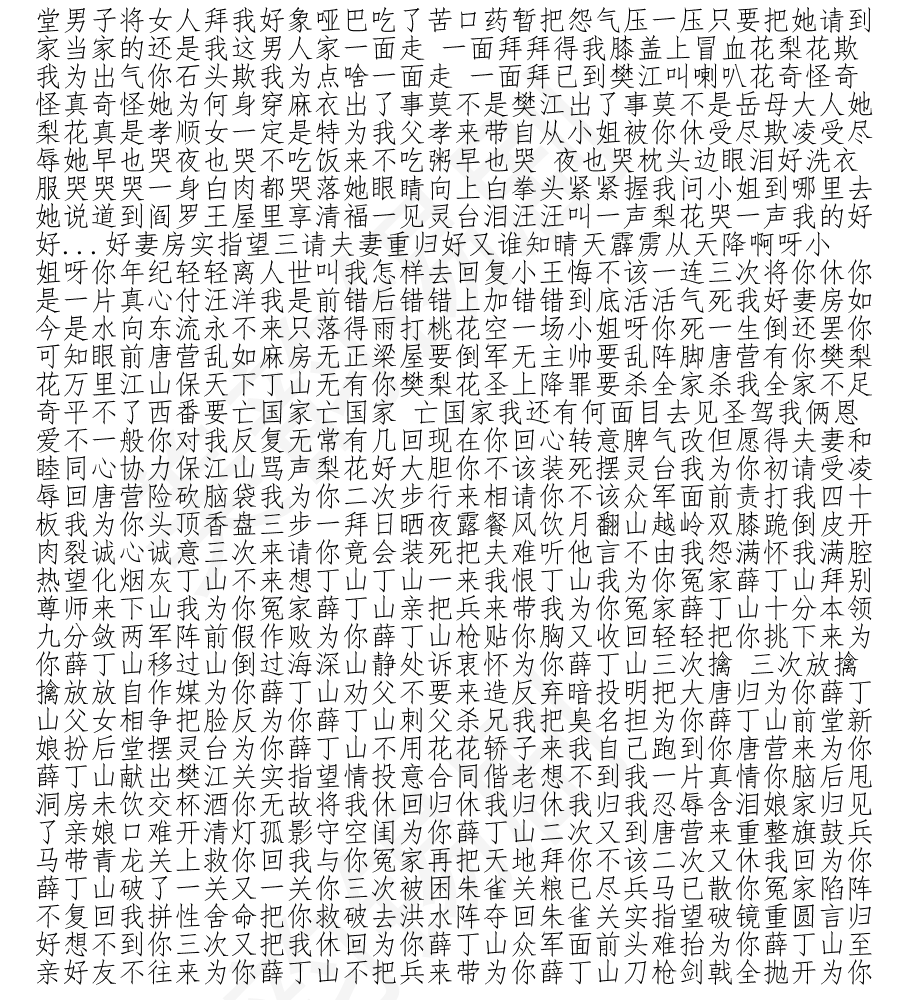 堂男子将女人拜我好象哑巴吃了苦口药暂把怨气压一压只要把她请到
家当家的还是我这男人家一面走 一面拜拜得我膝盖上冒血花梨花欺
我为出气你石头欺我为点啥一面走 一面拜已到樊江叫喇叭花奇怪奇
怪真奇怪她为何身穿麻衣出了事莫不是樊江出了事莫不是岳母大人她
梨花真是孝顺女一定是特为我父孝来带自从小姐被你休受尽欺凌受尽
辱她早也哭夜也哭不吃饭来不吃粥早也哭 夜也哭枕头边眼泪好洗衣
服哭哭哭一身白肉都哭落她眼睛向上白拳头紧紧握我问小姐到哪里去
她说道到阎罗王屋里享清福一见灵台泪汪汪叫一声梨花哭一声我的好
好...好妻房实指望三请夫妻重归好又谁知晴天霹雳从天降啊呀小
姐呀你年纪轻轻离人世叫我怎样去回复小王悔不该一连三次将你休你
是一片真心付汪洋我是前错后错错上加错错到底活活气死我好妻房如
今是水向东流永不来只落得雨打桃花空一场小姐呀你死一生倒还罢你
可知眼前唐营乱如麻房无正梁屋要倒军无主帅要乱阵脚唐营有你樊梨
花万里江山保天下丁山无有你樊梨花圣上降罪要杀全家杀我全家不足
奇平不了西番要亡国家亡国家 亡国家我还有何面目去见圣驾我俩恩
爱不一般你对我反复无常有几回现在你回心转意脾气改但愿得夫妻和
睦同心协力保江山骂声梨花好大胆你不该装死摆灵台我为你初请受凌
辱回唐营险砍脑袋我为你二次步行来相请你不该众军面前责打我四十
板我为你头顶香盘三步一拜日晒夜露餐风饮月翻山越岭双膝跪倒皮开
肉裂诚心诚意三次来请你竟会装死把夫难听他言不由我怨满怀我满腔
热望化烟灰丁山不来想丁山丁山一来我恨丁山我为你冤家薛丁山拜别
尊师来下山我为你冤家薛丁山亲把兵来带我为你冤家薛丁山十分本领
九分敛两军阵前假作败为你薛丁山枪贴你胸又收回轻轻把你挑下来为
你薛丁山移过山倒过海深山静处诉衷怀为你薛丁山三次擒 三次放擒
擒放放自作媒为你薛丁山劝父不要来造反弃暗投明把大唐归为你薛丁
山父女相争把脸反为你薛丁山刺父杀兄我把臭名担为你薛丁山前堂新
娘扮后堂摆灵台为你薛丁山不用花花轿子来我自己跑到你唐营来为你
薛丁山献出樊江关实指望情投意合同偕老想不到我一片真情你脑后甩
洞房未饮交杯酒你无故将我休回归休我归休我归我忍辱含泪娘家归见
了亲娘口难开清灯孤影守空闺为你薛丁山二次又到唐营来重整旗鼓兵
马带青龙关上救你回我与你冤家再把天地拜你不该二次又休我回为你
薛丁山破了一关又一关你三次被困朱雀关粮已尽兵马已散你冤家陷阵
不复回我拼性舍命把你救破去洪水阵夺回朱雀关实指望破镜重圆言归
好想不到你三次又把我休回为你薛丁山众军面前头难抬为你薛丁山至
亲好友不往来为你薛丁山不把兵来带为你薛丁山刀枪剑戟全抛开为你